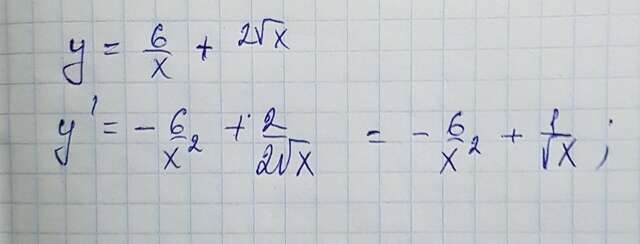 y = 6/x + 2√x
y' = -6/x² + 2/2√x = -6/x² + 1/√x ;